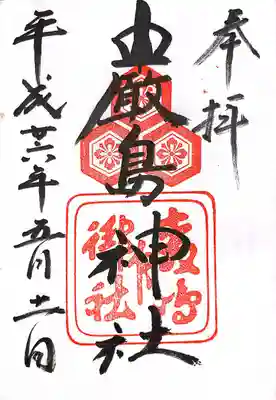 奉拝
厳島神社
平成廿六年五月十一日
嚴島
御社